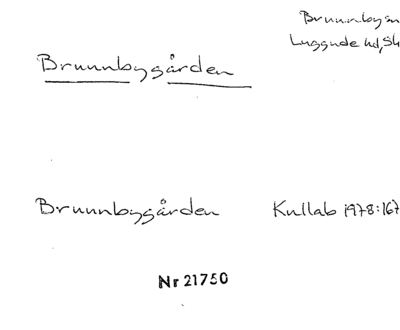 Brunnby sn
Luggude hd, Sk
Brunnbygården
Brunnbygården Kullab 1978:167
Nr 21750